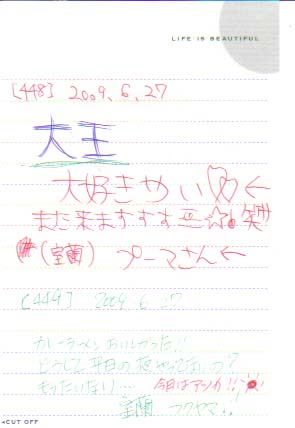 LIFE IS BEAUTIFUL
[448] 2009.6.27
大王
大好きやい
また来ますすす 笑
(室蘭) プーマさん
[449] 2009 6 27
カレーラーメンおいしかった!!
どうして平日の夜やってないの?
もったいない… 今日はアンカ!!
室蘭 フクヤマ!!
CUT OFF